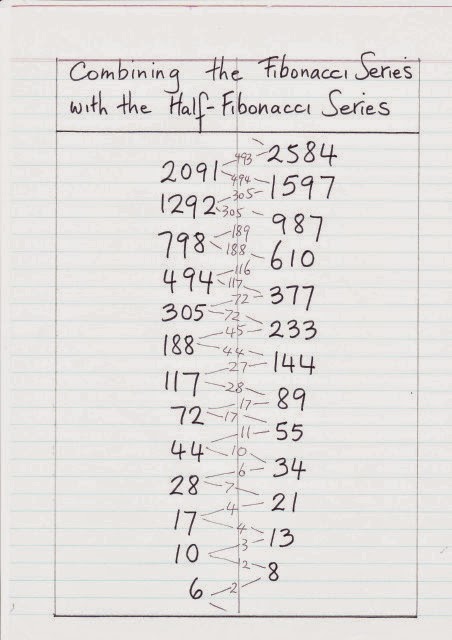 Combining the Fibonacci Series
with the Half-Fibonacci Series
493 2584
2091 494
305 1597
1292 305
987
189
798 188
610
116
494 117
72 377
305 72
45 233
188 44
27 144
117 28
17 89
72 17
11 55
44 10
6 34
28 7
4 21
17 4
3 13
10 2
8
6 2